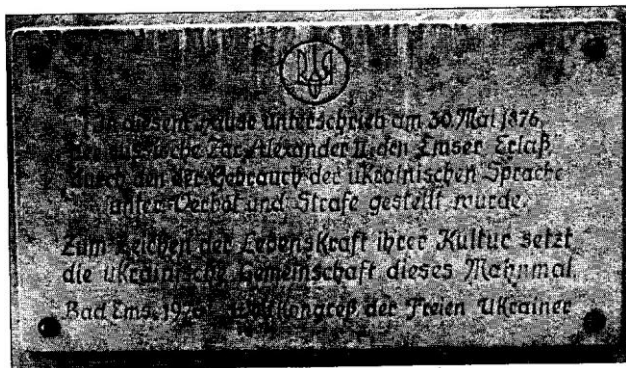 In diesem Hause unterschrieb am 30. Mai 1876
der russische Zar Alexander II. den Emser Erlaß
durch den der Gebrauch der ukrainischen Sprache
unter Verbot und Strafe gestellt wurde.
Zum Zeichen der Lebenskraft ihrer Kultur setzt
die ukrainische Gemeinschaft dieses Mahnmal
Bad Ems, Kongreß der Freien Ukrainer